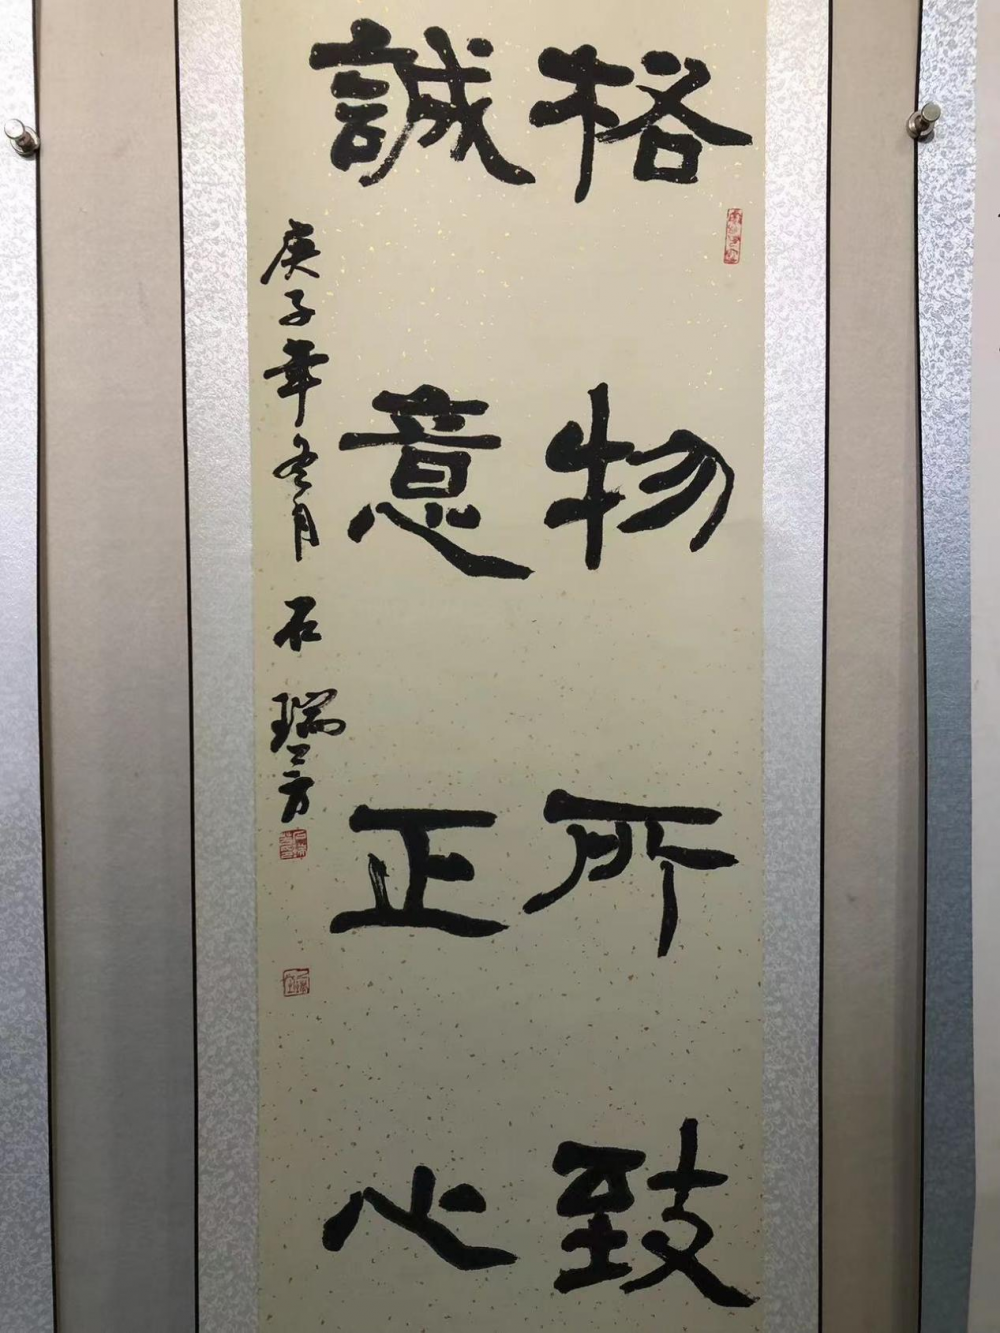 格物所致
誠意正心
庚子年冬月 石瑞芳